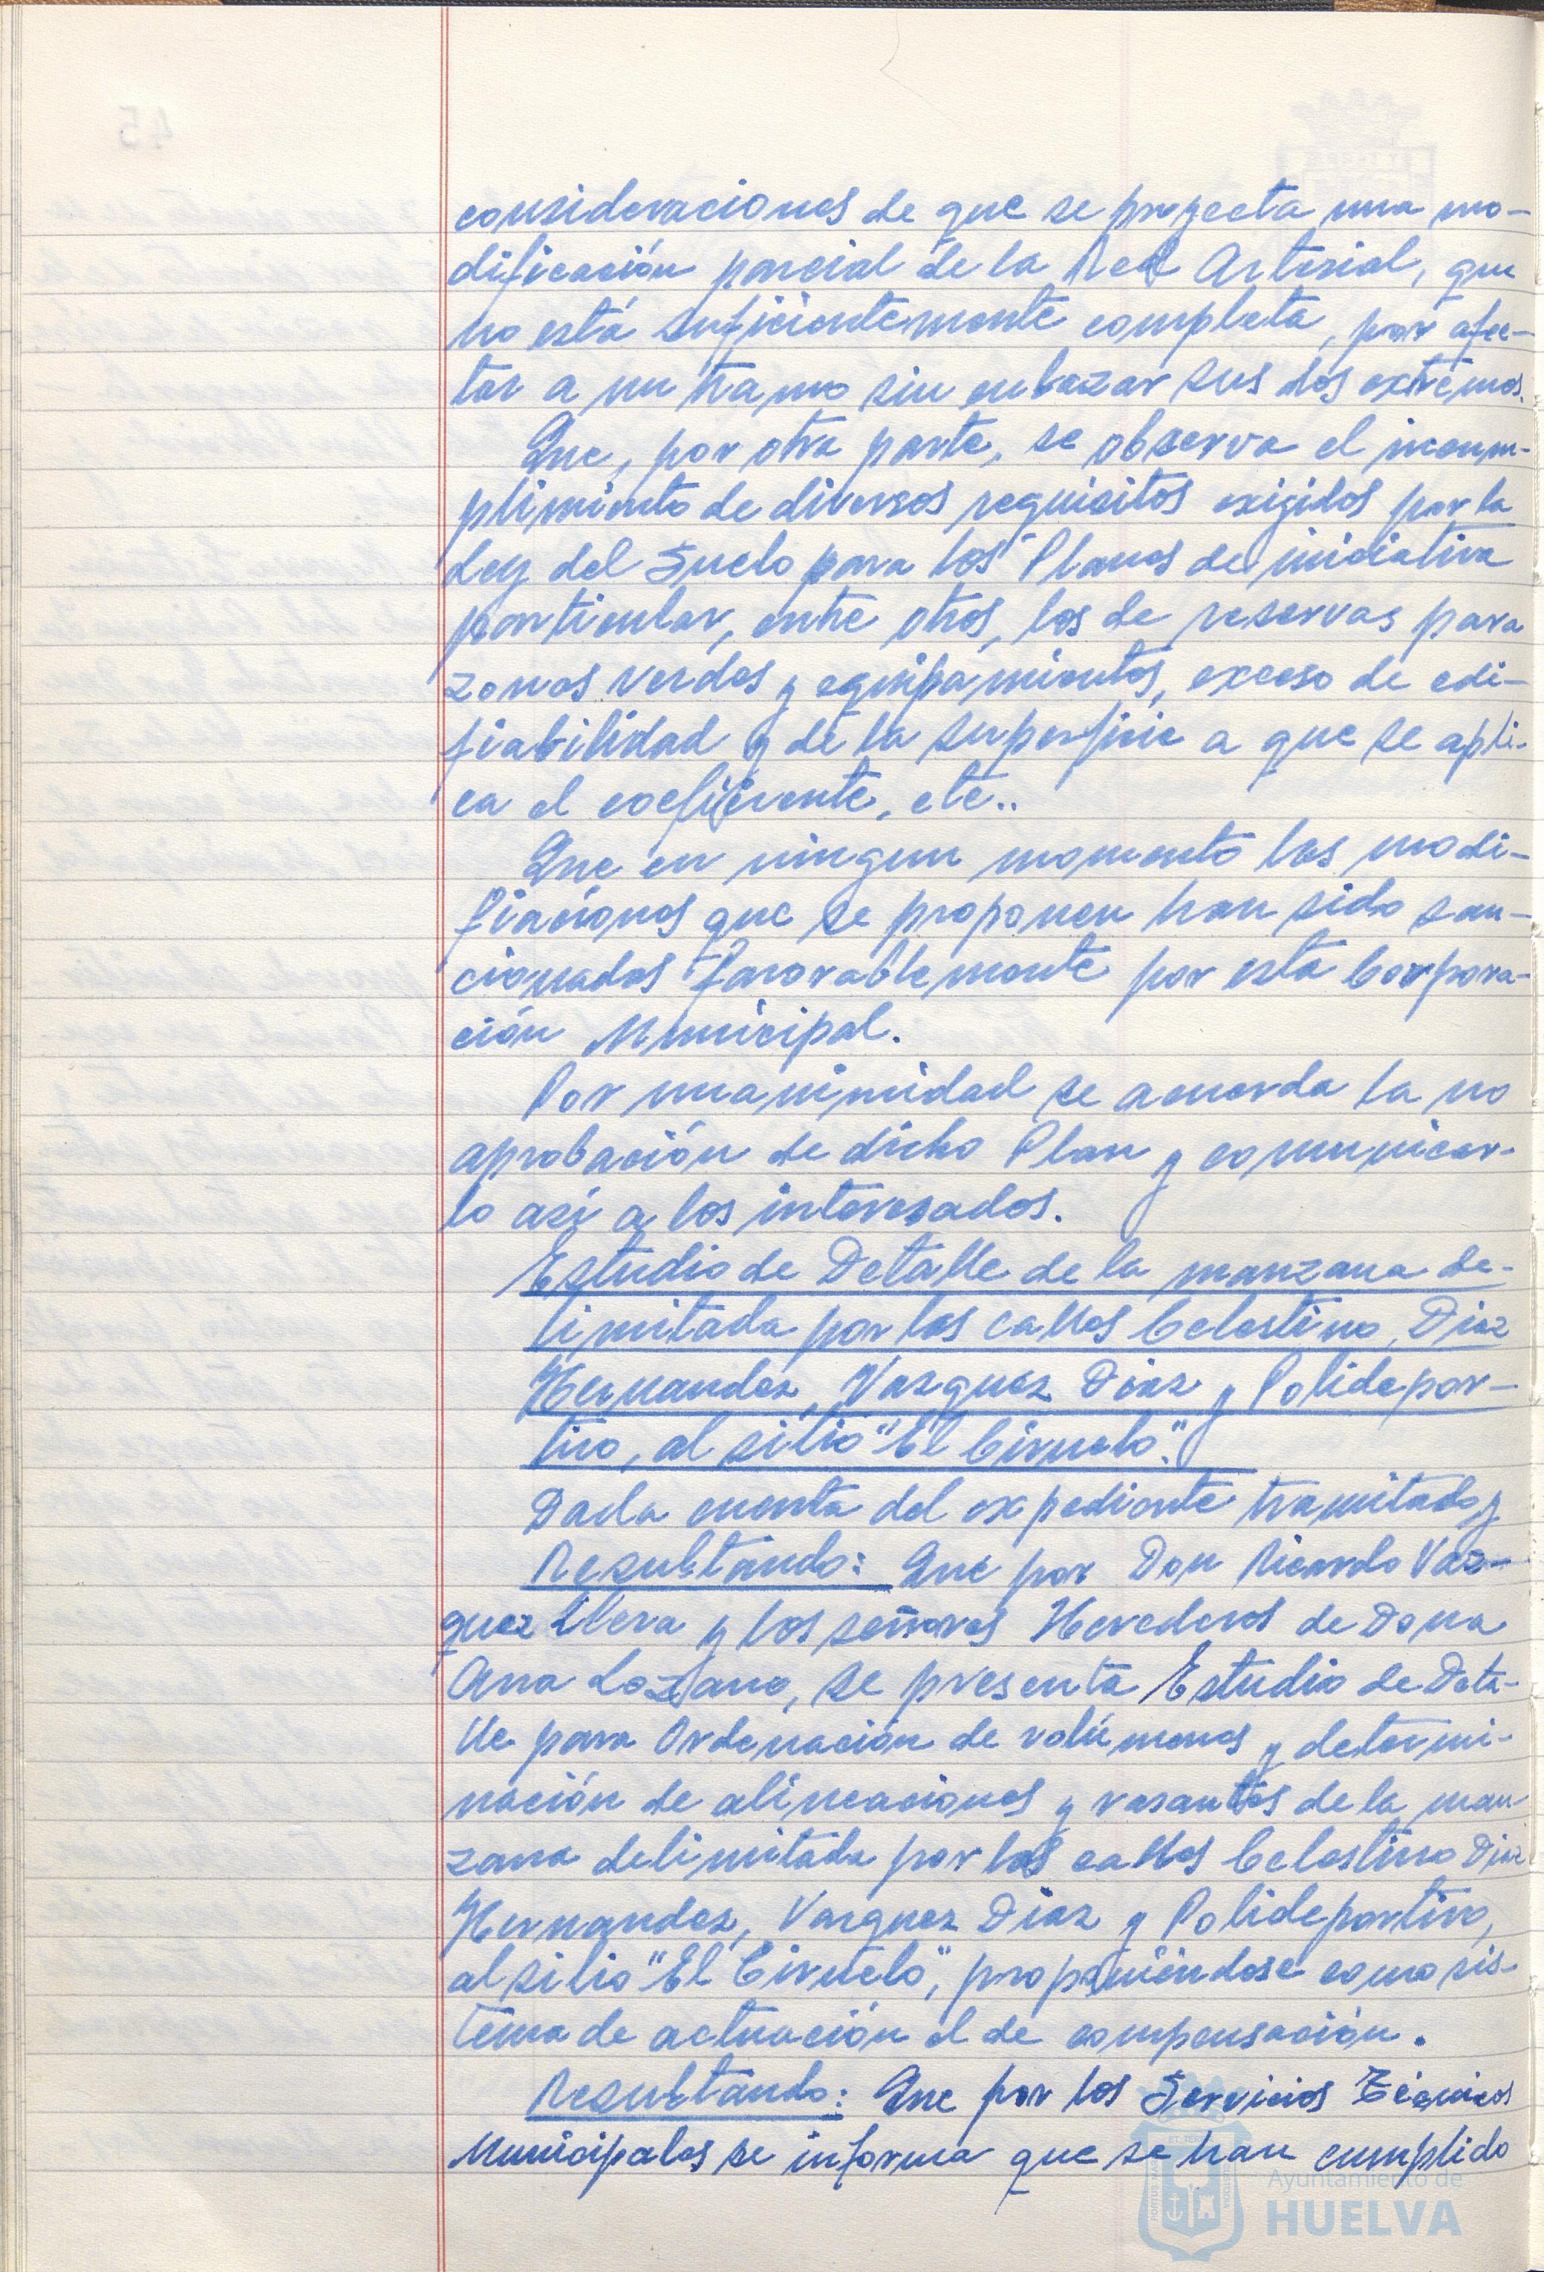 consideraciones de que se proyecta una mo-
dificación parcial de la Red Arterial, que
no está suficientemente completa, por afec-
tar a un tramo sin enlazar sus dos extremos.
Que, por otra parte, se observa el incum-
plimiento de diversos requisitos exigidos por la
Ley del Suelo para los Planes de iniciativa
particular, entre otros, los de reservas para
zonas verdes y equipamientos, exceso de edi-
fiabilidad y de la superficie a que se apli-
ca el coeficiente, etc..
Que en ningun momento las modi-
fiaciones que se proponen han sido san-
cionadas favorablemente por esta Corpora-
ción Municipal.
Por unanimidad se acuerda la no
aprobación de dicho Plan y comunicar-
lo así a los interesados.
Estudio de Detalle de la manzana de-
limitada por las calles Celestino, Diaz
Hernandez, Vazquez Diaz y Polidepor-
tivo, al sitio "El Ciruelo".
Dada cuenta del expediente tramitado y
Resultando: Que por Don Ricardo Vaz-
quez Llera y los señores Herederos de Dona
Ana Lozano, se presenta Estudio de Deta-
lle para Ordenación de volúmenes y determi-
nación de alineaciones y rasantes de la man-
zana delimitada por las calles Celestino Diaz
Hernandez, Vazquez Diaz y Polideportivo,
al sitio "El Ciruelo", proponiéndose como sis-
tema de actuación el de compensación.
Resultando: Que por los Servicios Técnicos
Municipales se informa que se han cumplido
Ayuntamiento de
HUELVA